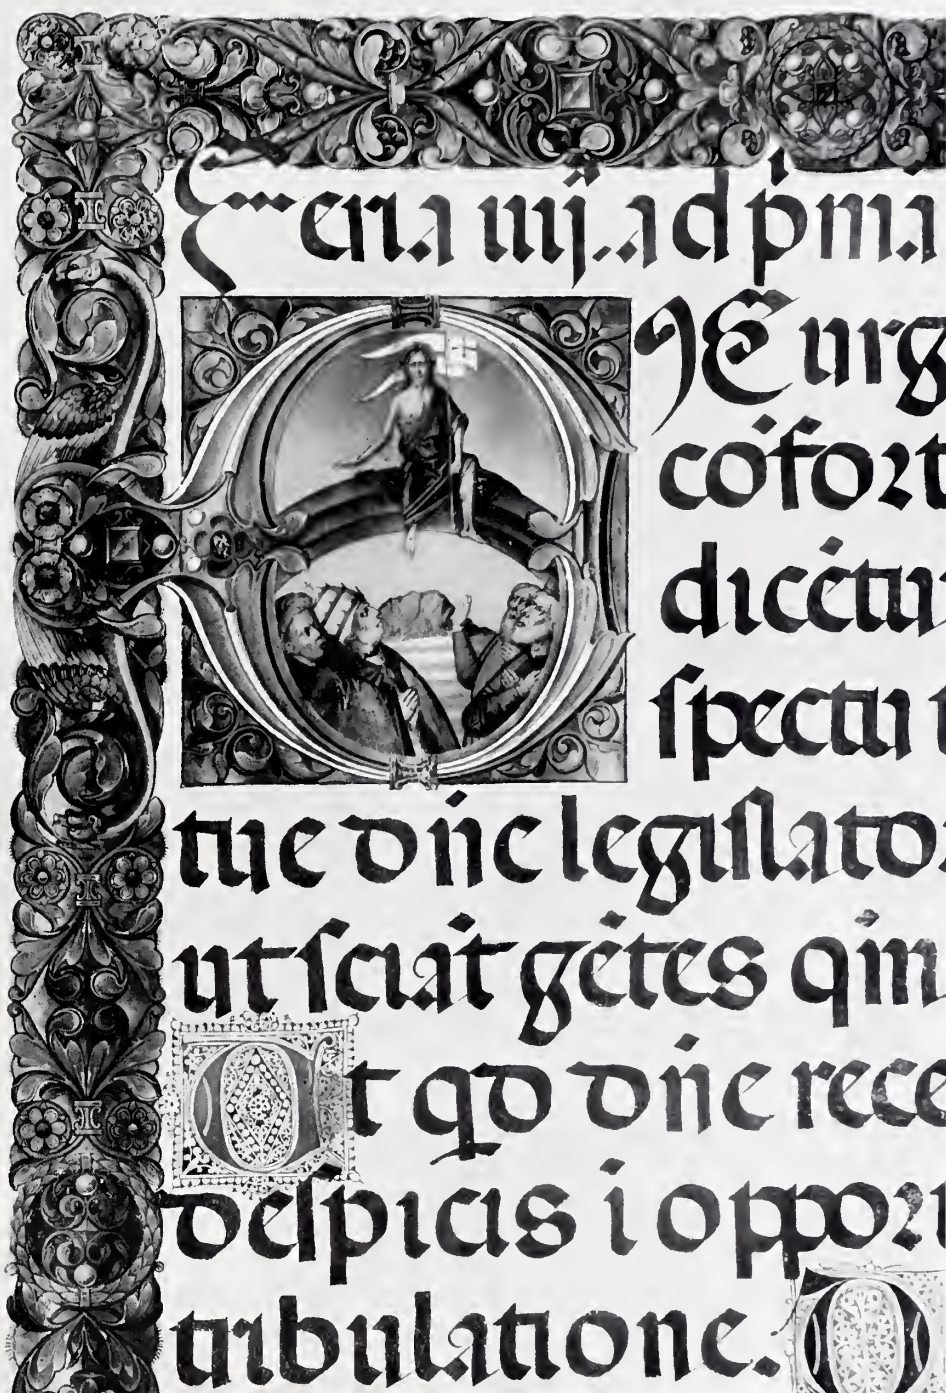 Feria iiij. ad p̄ma
EXurg
cōfort
dicētu
spectu t
tue dn̄e legislator
ut sciāt gētes qm̄
Ut qd dn̄e rece
despicis ī oppor
tribulatione. D